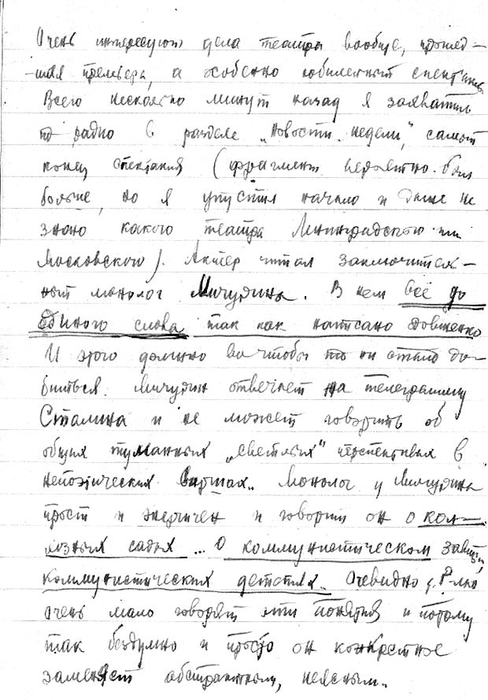 Очень интересуют дела театра вообще, прошед-
шая премьера, а особенно юбилейный спектакль
Всего несколько минут назад я захватил
по радио в разделе „новости недели", самый
конец спектакля (фрагмент вероятно был
больше, но я упустил начало и даже не
знаю какого театра Ленинградского или
Московского). Актёр читал заключитель-
ный монолог Мичурина. В нем всё до
единого слова так как написано Довженко
И этого должно во чтобы то ни стало до-
биться. Мичурин отвечает на телеграмму
Сталина и не может говорить об
общих туманных „светлых" перспективах в
непоэтических виршах.. Монолог у Мичурина
прост и энергичен и говорит он о кол-
хозных садах ... О коммунистическом
коммунистических деталях. Очевидно
очень мало говорят эти понятия и потому
так бездумно и просто он конкретное
заменяет абстрактным, неясным.